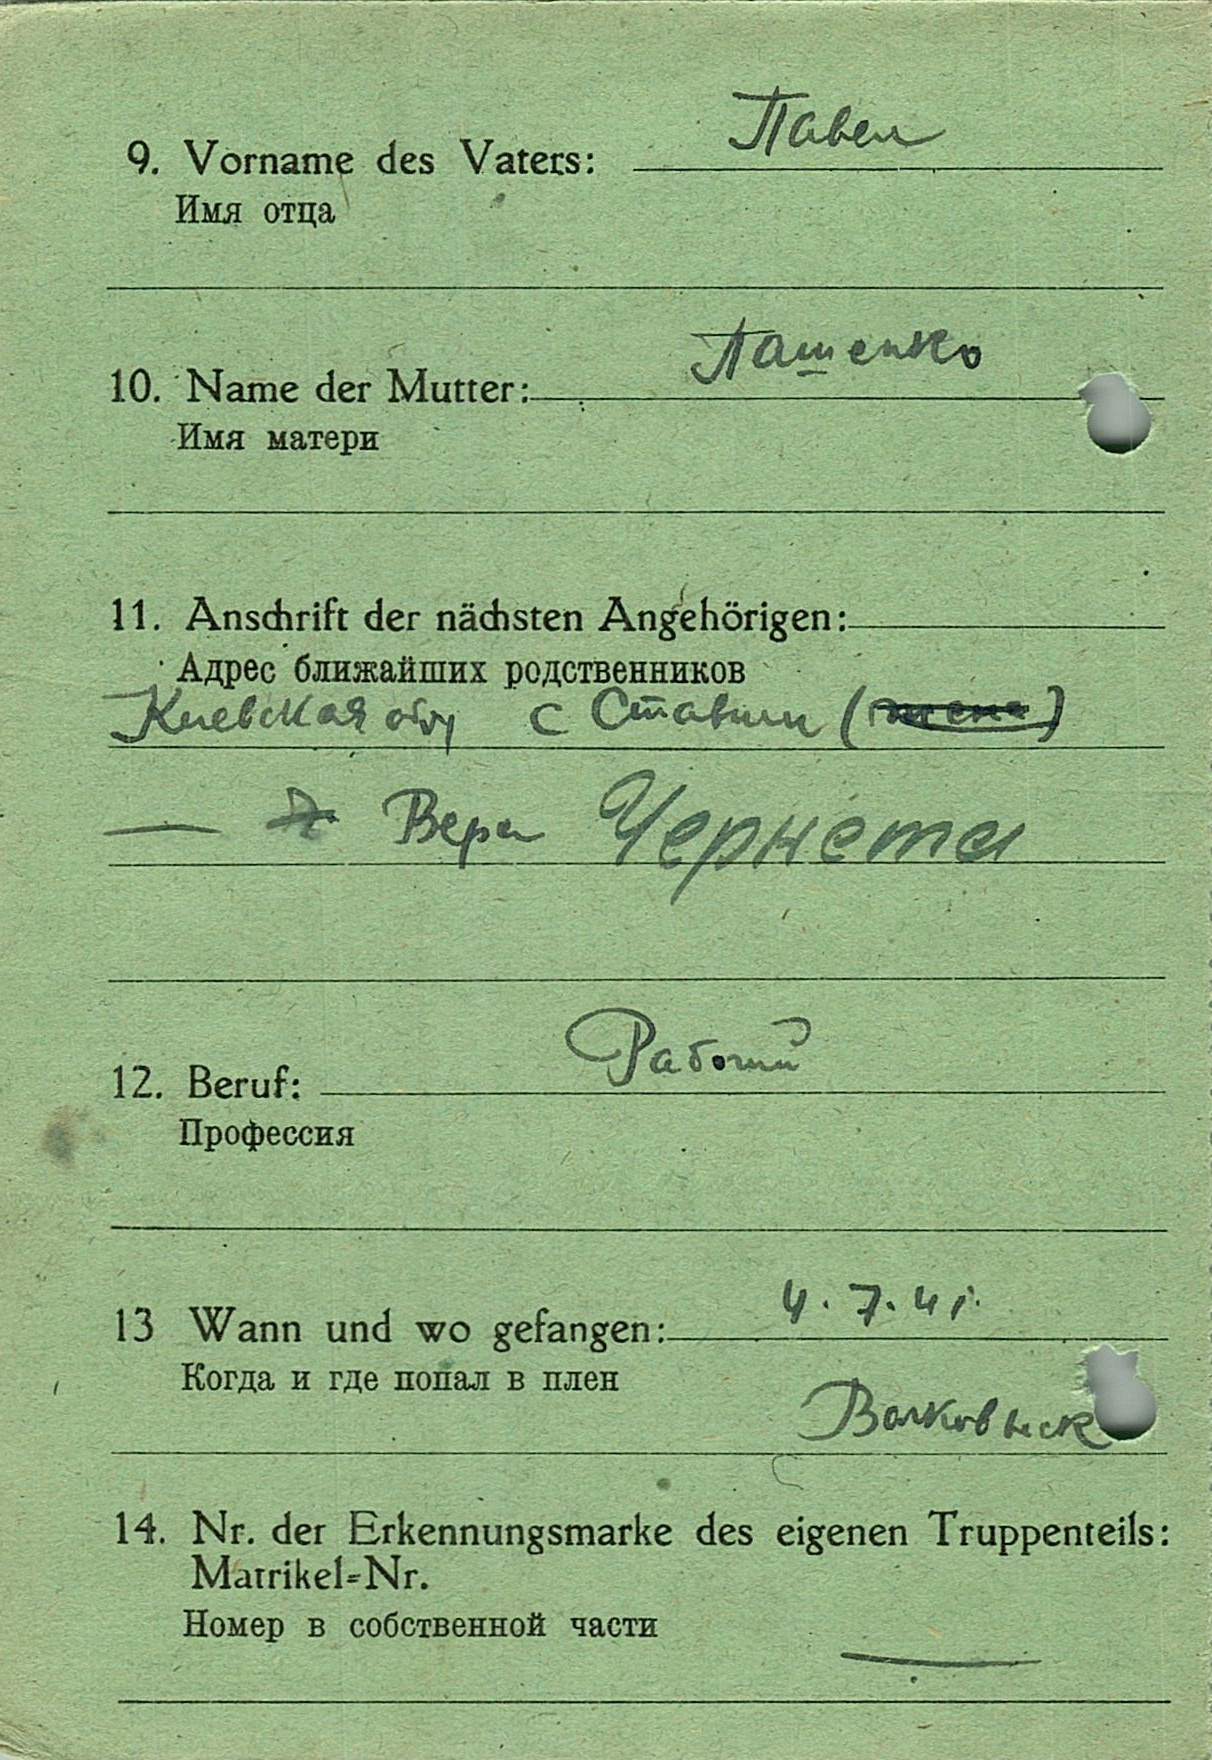 9. Vorname des Vaters: Павел
Имя отца
10. Name der Mutter: Пашенко
Имя матери
11. Anschrift der nächsten Angehörigen:
Адрес ближайших родственников
Киевская обл с Ставищи (жена)
— Вера Чернета
12. Beruf: Рабочий
Профессия
13 Wann und wo gefangen: 4.7.41.
Когда и где попал в плен
Волковыск
14. Nr. der Erkennungsmarke des eigenen Truppenteils:
Matrikel=Nr.
Номер в собственной части
—